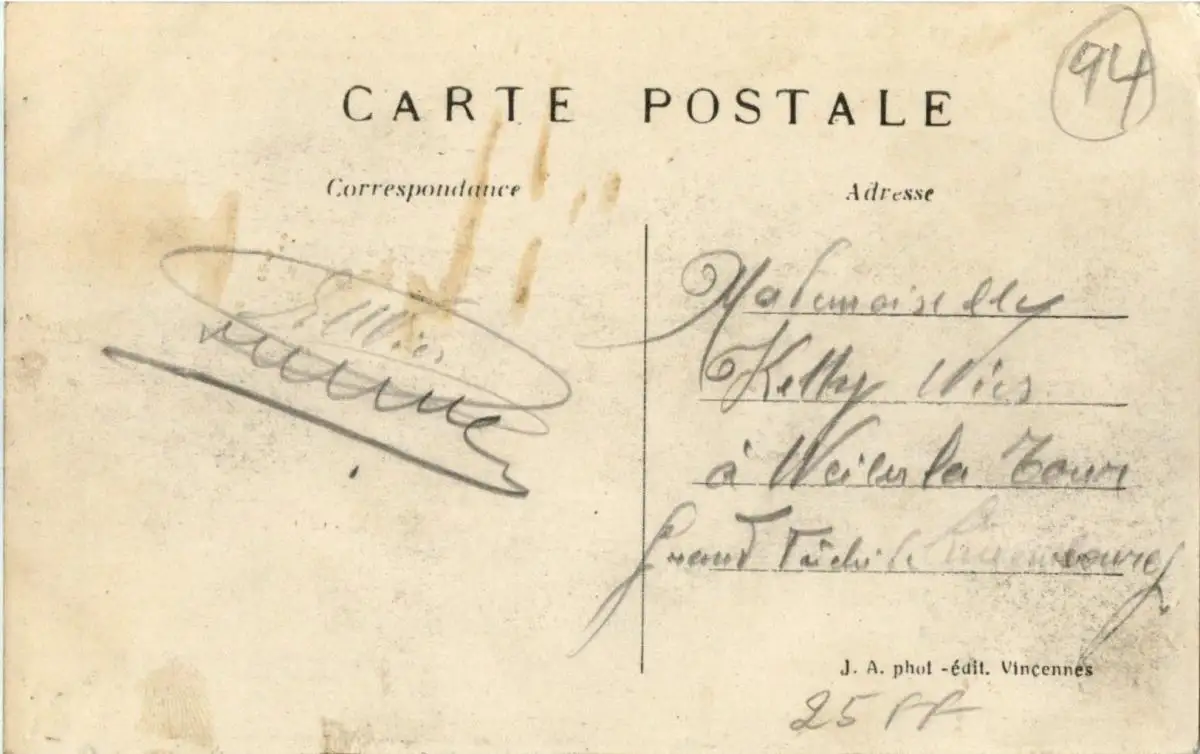 94
CARTE POSTALE
Correspondance
Adresse
Mademoiselle
Ketty Wies
à Weiler la Tour
Grand Duché de Luxembourg
Wies
J. A. phot -édit. Vincennes
25 FF